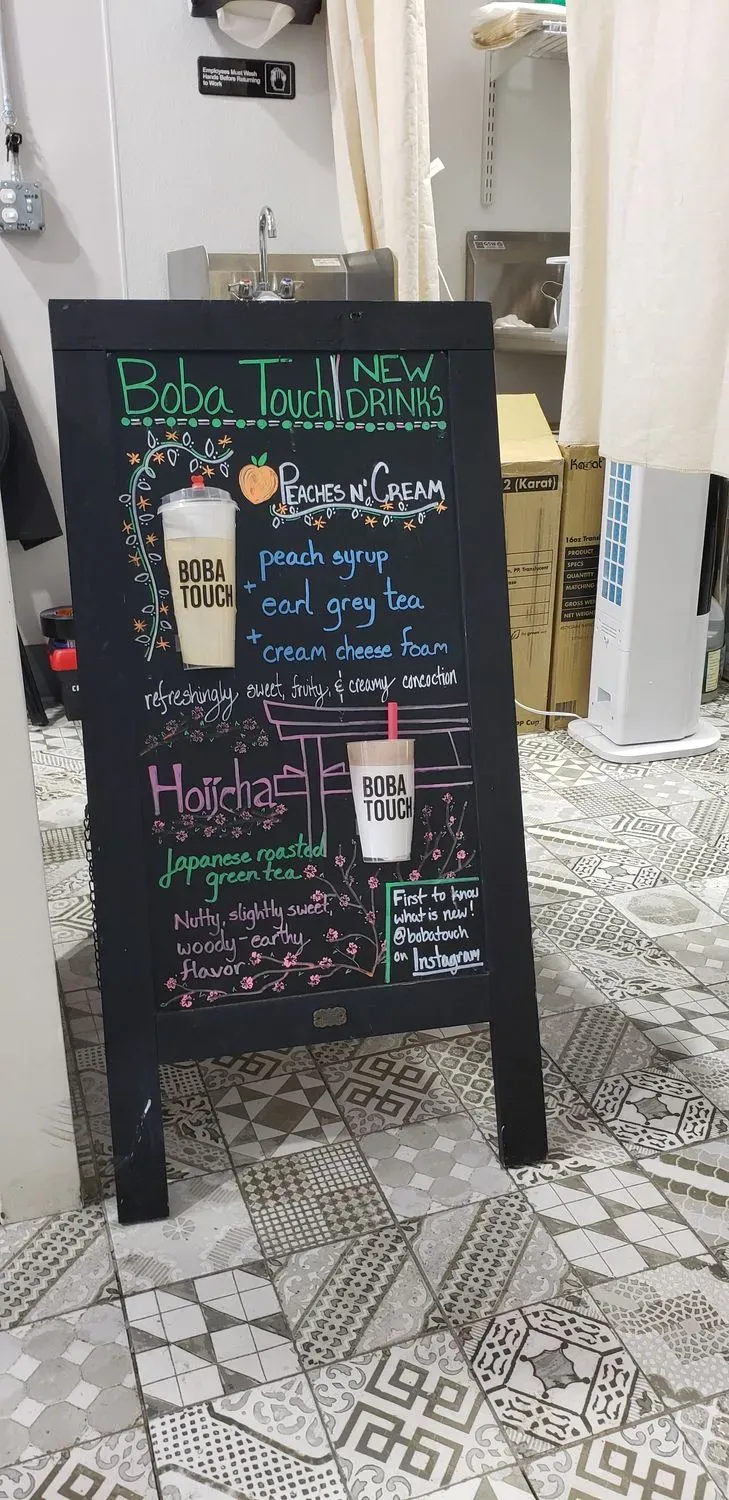 Employees Must Wash
Hands Before Returning
to Work
Boba Touch NEW
DRINKS
PEACHES N' CREAM
BOBA
TOUCH
peach syrup
+ earl grey tea
+ cream cheese foam
refreshingly sweet, fruity, & creamy concoction
Hojicha
BOBA
TOUCH
Japanese roasted
green tea
Nutty, slightly sweet,
woody-earthy
flavor
First to know
what is new!
@bobatouch
on Instagram
2 (Karat)
Karat
PP, Translucent
16oz
PRODUCT
SPECS
QUANTITY
MATCHING
GROSS WE
NET WEIGHT
PP Cup